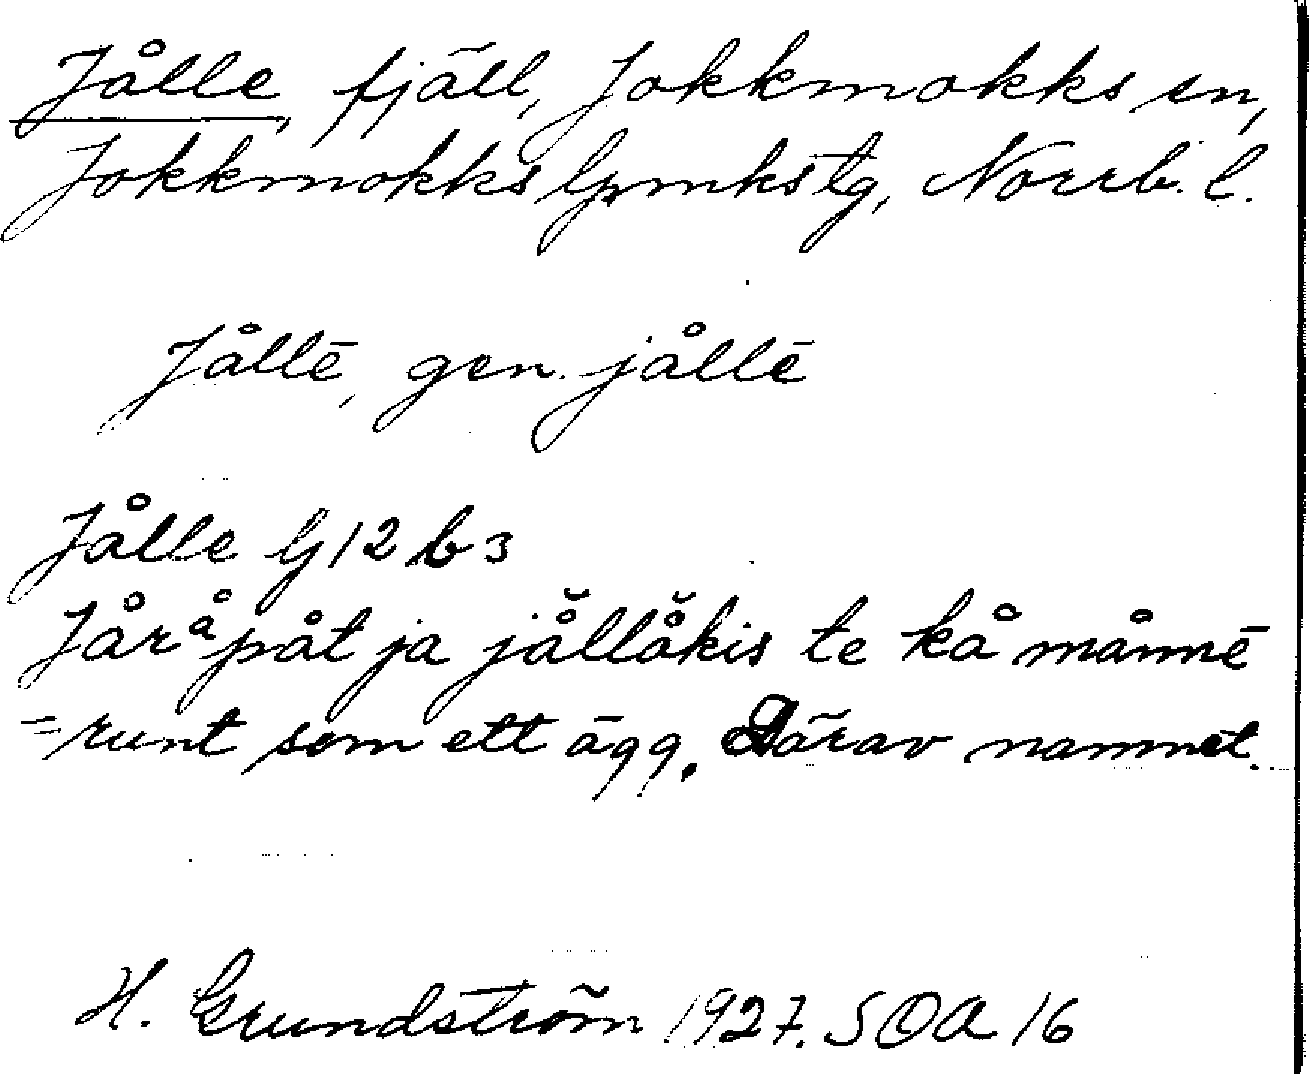 Jålle, fjäll, Jokkmokks sn,
Jokkmokks lpmkstg, Norrb. l.
Jållē, gen. jållē
Jålle G 12 b 3
Jåråpåt ja jållåkis te kå månnē
= runt som ett ägg. Därav namnet.
H. Grundström 1927. SOA 16